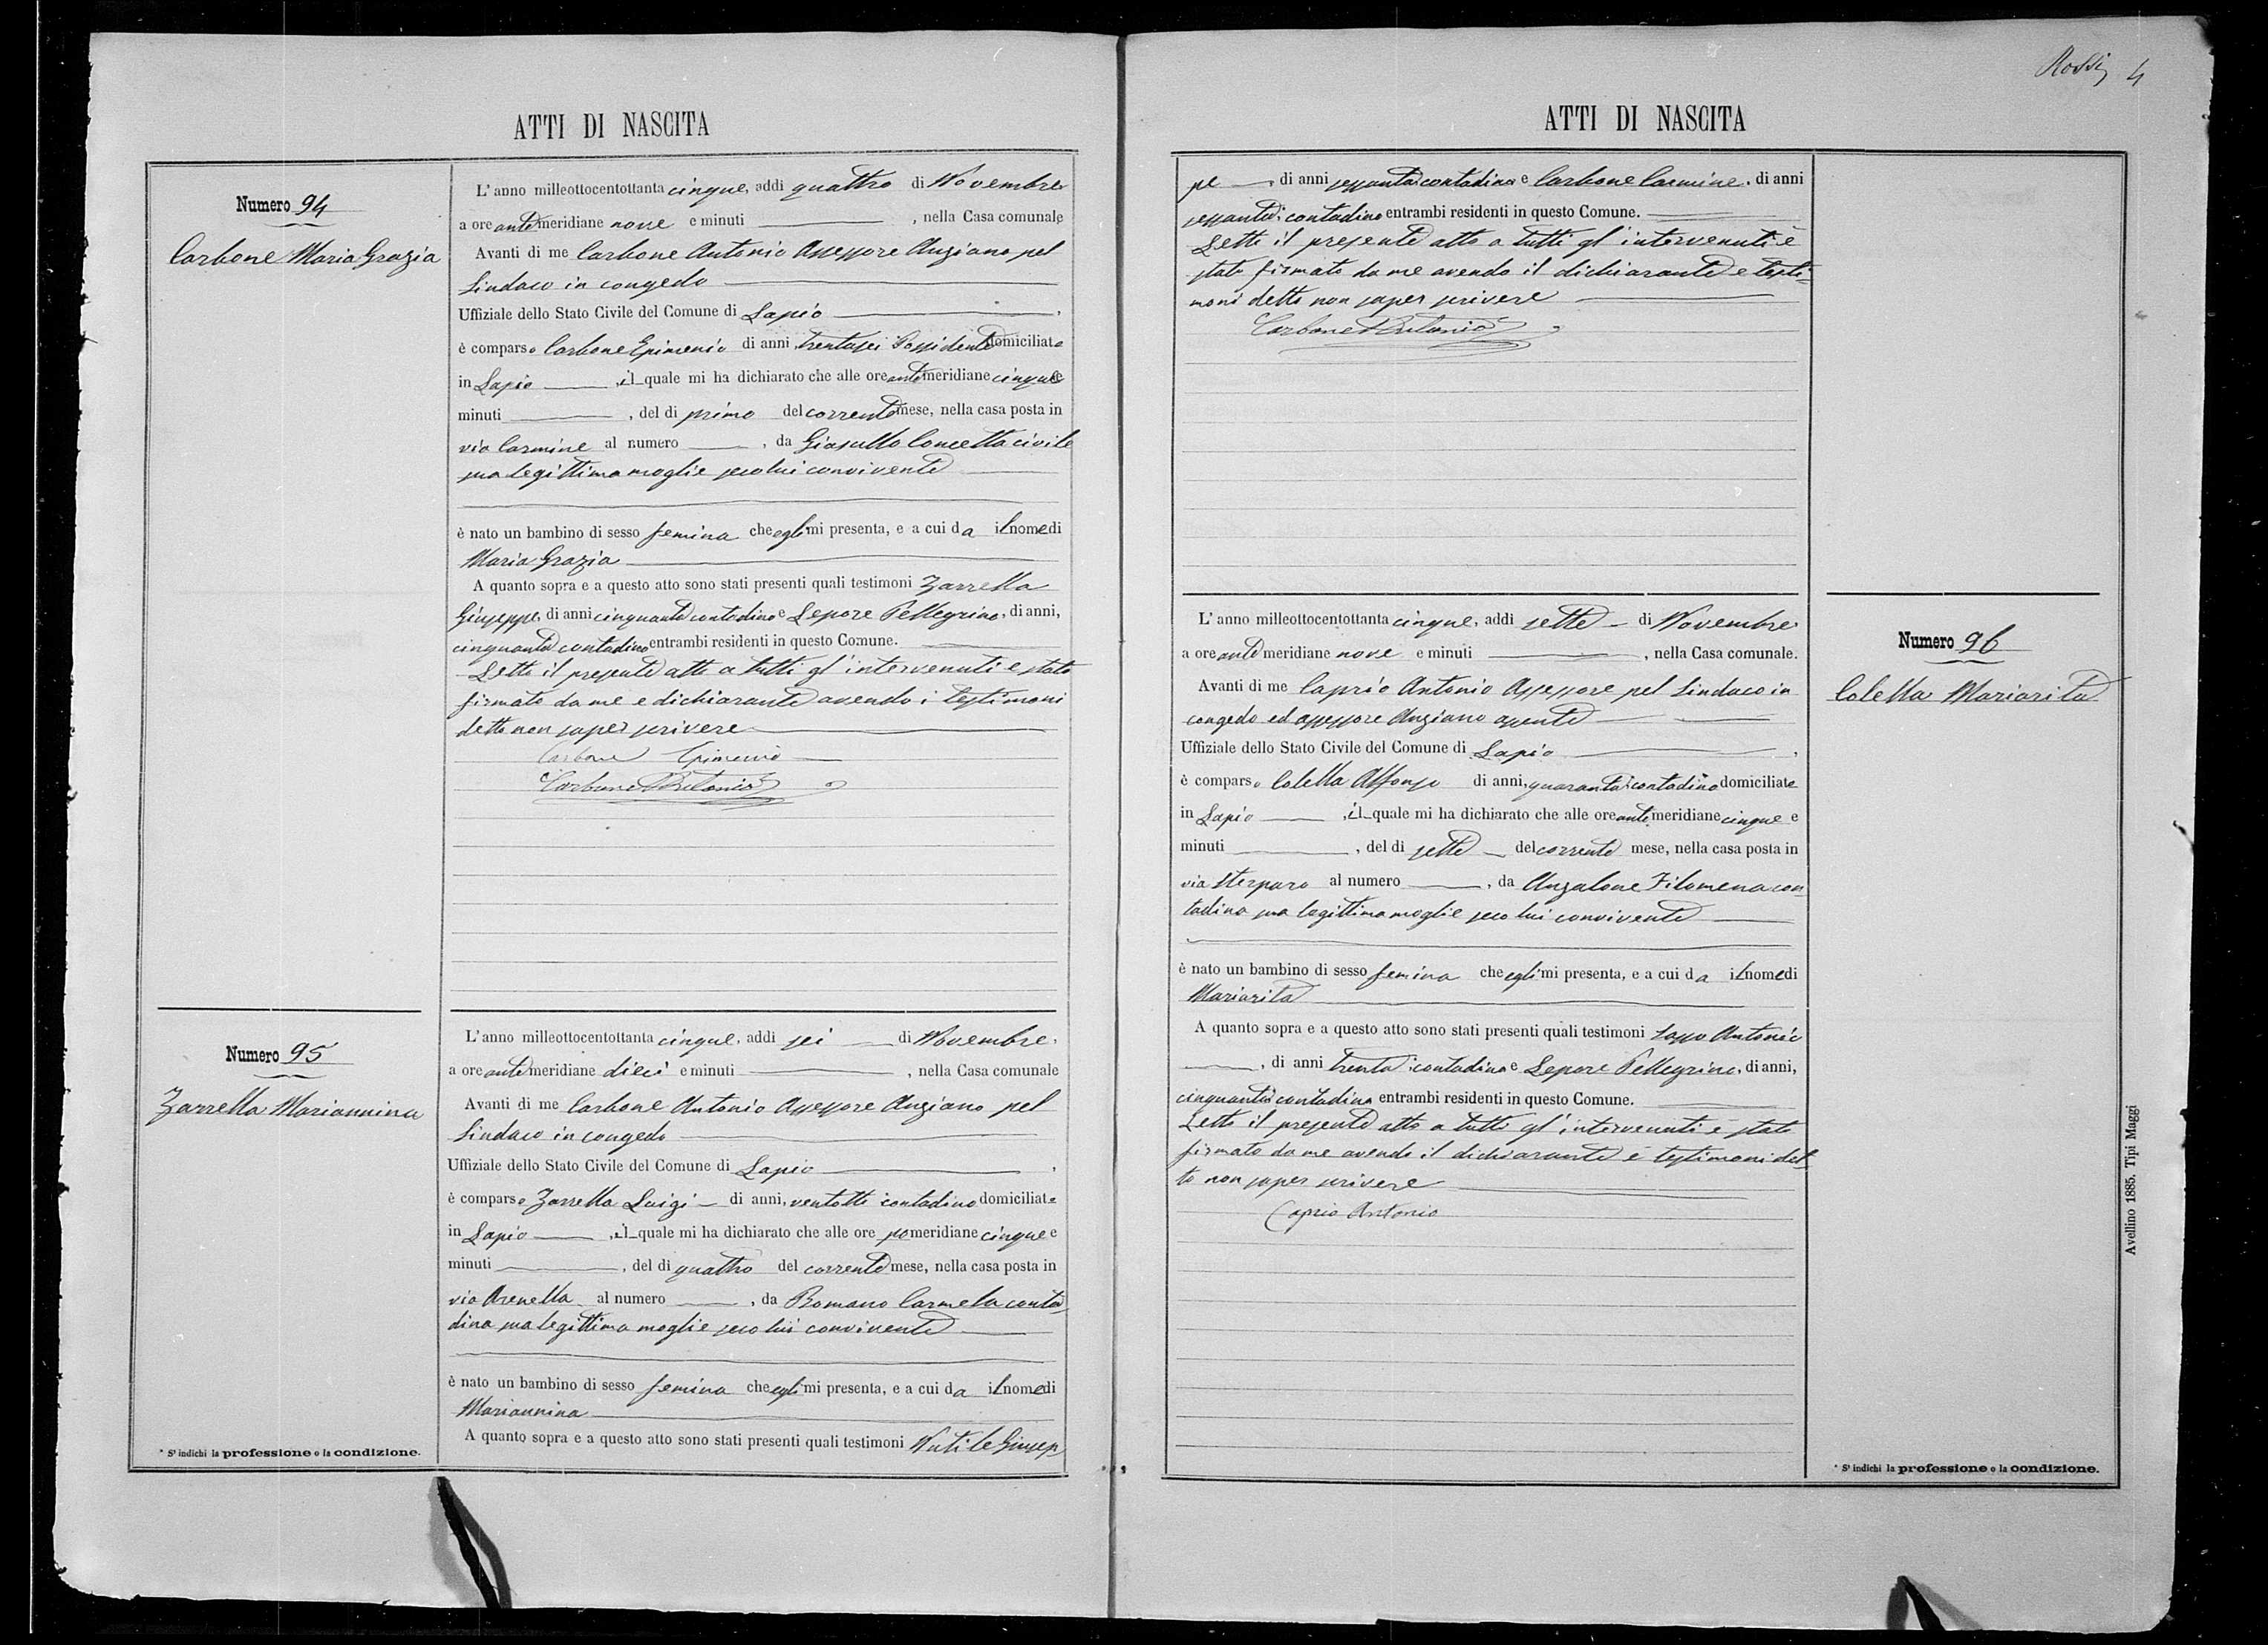 ATTI DI NASCITA
Numero 94
Carbone Maria Grazia
L'anno milleottocentottanta cinque, addì quattro di Novembre
a ore ante meridiane nove e minuti , nella Casa comunale
Avanti di me Carbone Antonio Assessore Anziano pel
Sindaco in congedo
Uffiziale dello Stato Civile del Comune di Lapio ,
è comparso Carbone Epimenio di anni trentasei Possidente domiciliato
in Lapio , il quale mi ha dichiarato che alle ore ante meridiane cinque e
minuti , del dì primo del corrente mese, nella casa posta in
via Carmine al numero , da Giasullo Concetta civile
sua legittima moglie seco lui convivente
è nato un bambino di sesso femina che egli mi presenta, e a cui da il nome di
Maria Grazia
A quanto sopra e a questo atto sono stati presenti quali testimoni Zarrella
Giuseppe, di anni cinquanta contadino e Lepore Pellegrino, di anni,
cinquanta contadino entrambi residenti in questo Comune.
Letto il presente atto a tutti gl'intervenuti è stato
firmato da me e dichiarante avendo i testimoni
detto non saper scrivere
Carbone Epimenio
Carbone Antonio
Numero 95
Zarrella Mariannina
L'anno milleottocentottanta cinque, addì sei di Novembre,
a ore ante meridiane dieci e minuti , nella Casa comunale
Avanti di me Carbone Antonio Assessore Anziano pel
Sindaco in congedo
Uffiziale dello Stato Civile del Comune di Lapio ,
è comparso Zarrella Luigi di anni, ventotto contadino domiciliato
in Lapio , il quale mi ha dichiarato che alle ore pomeridiane cinque e
minuti , del dì quattro del corrente mese, nella casa posta in
via Arenella al numero , da Romano Carmela conta
dina sua legittima moglie seco lui convivente
è nato un bambino di sesso femina che egli mi presenta, e a cui da il nome di
Mariannina
A quanto sopra e a questo atto sono stati presenti quali testimoni Nutile Giusep
* S'indichi la professione o la condizione.
Rossi 4
ATTI DI NASCITA
pe , di anni sessanta contadino e Carbone Carmine, di anni
sessanta, contadino entrambi residenti in questo Comune.
Letto il presente atto a tutti gl'intervenuti è
stato firmato da me avendo il dichiarante e testi=
moni detto non saper scrivere
Carbone Antonio
L'anno milleottocentottanta cinque, addì sette di Novembre
a ore ante meridiane nove e minuti , nella Casa comunale.
Avanti di me Caprio Antonio Assessore pel Sindaco in
congedo ed assessore Anziano assente
Uffiziale dello Stato Civile del Comune di Lapio ,
è comparso Colella Alfonso di anni, quaranta contadino domiciliato
in Lapio , il quale mi ha dichiarato che alle ore ante meridiane cinque e
minuti , del dì sette del corrente mese, nella casa posta in
via Sterparo al numero , da Anzalone Filomena con
tadina sua legittima moglie seco lui convivente
è nato un bambino di sesso femina che egli mi presenta, e a cui da il nome di
Mariarita
A quanto sopra e a questo atto sono stati presenti quali testimoni Antonio
, di anni trenta contadino e Lepore Pellegrino, di anni,
cinquanta contadino entrambi residenti in questo Comune.
Letto il presente atto a tutti gl'intervenuti è stato
firmato da me avendo il dichiarante e testimoni det
to non saper scrivere
Caprio Antonio
Numero 96
Colella Mariarita
Avellino 1885, Tipi Maggi
* S'indichi la professione o la condizione.